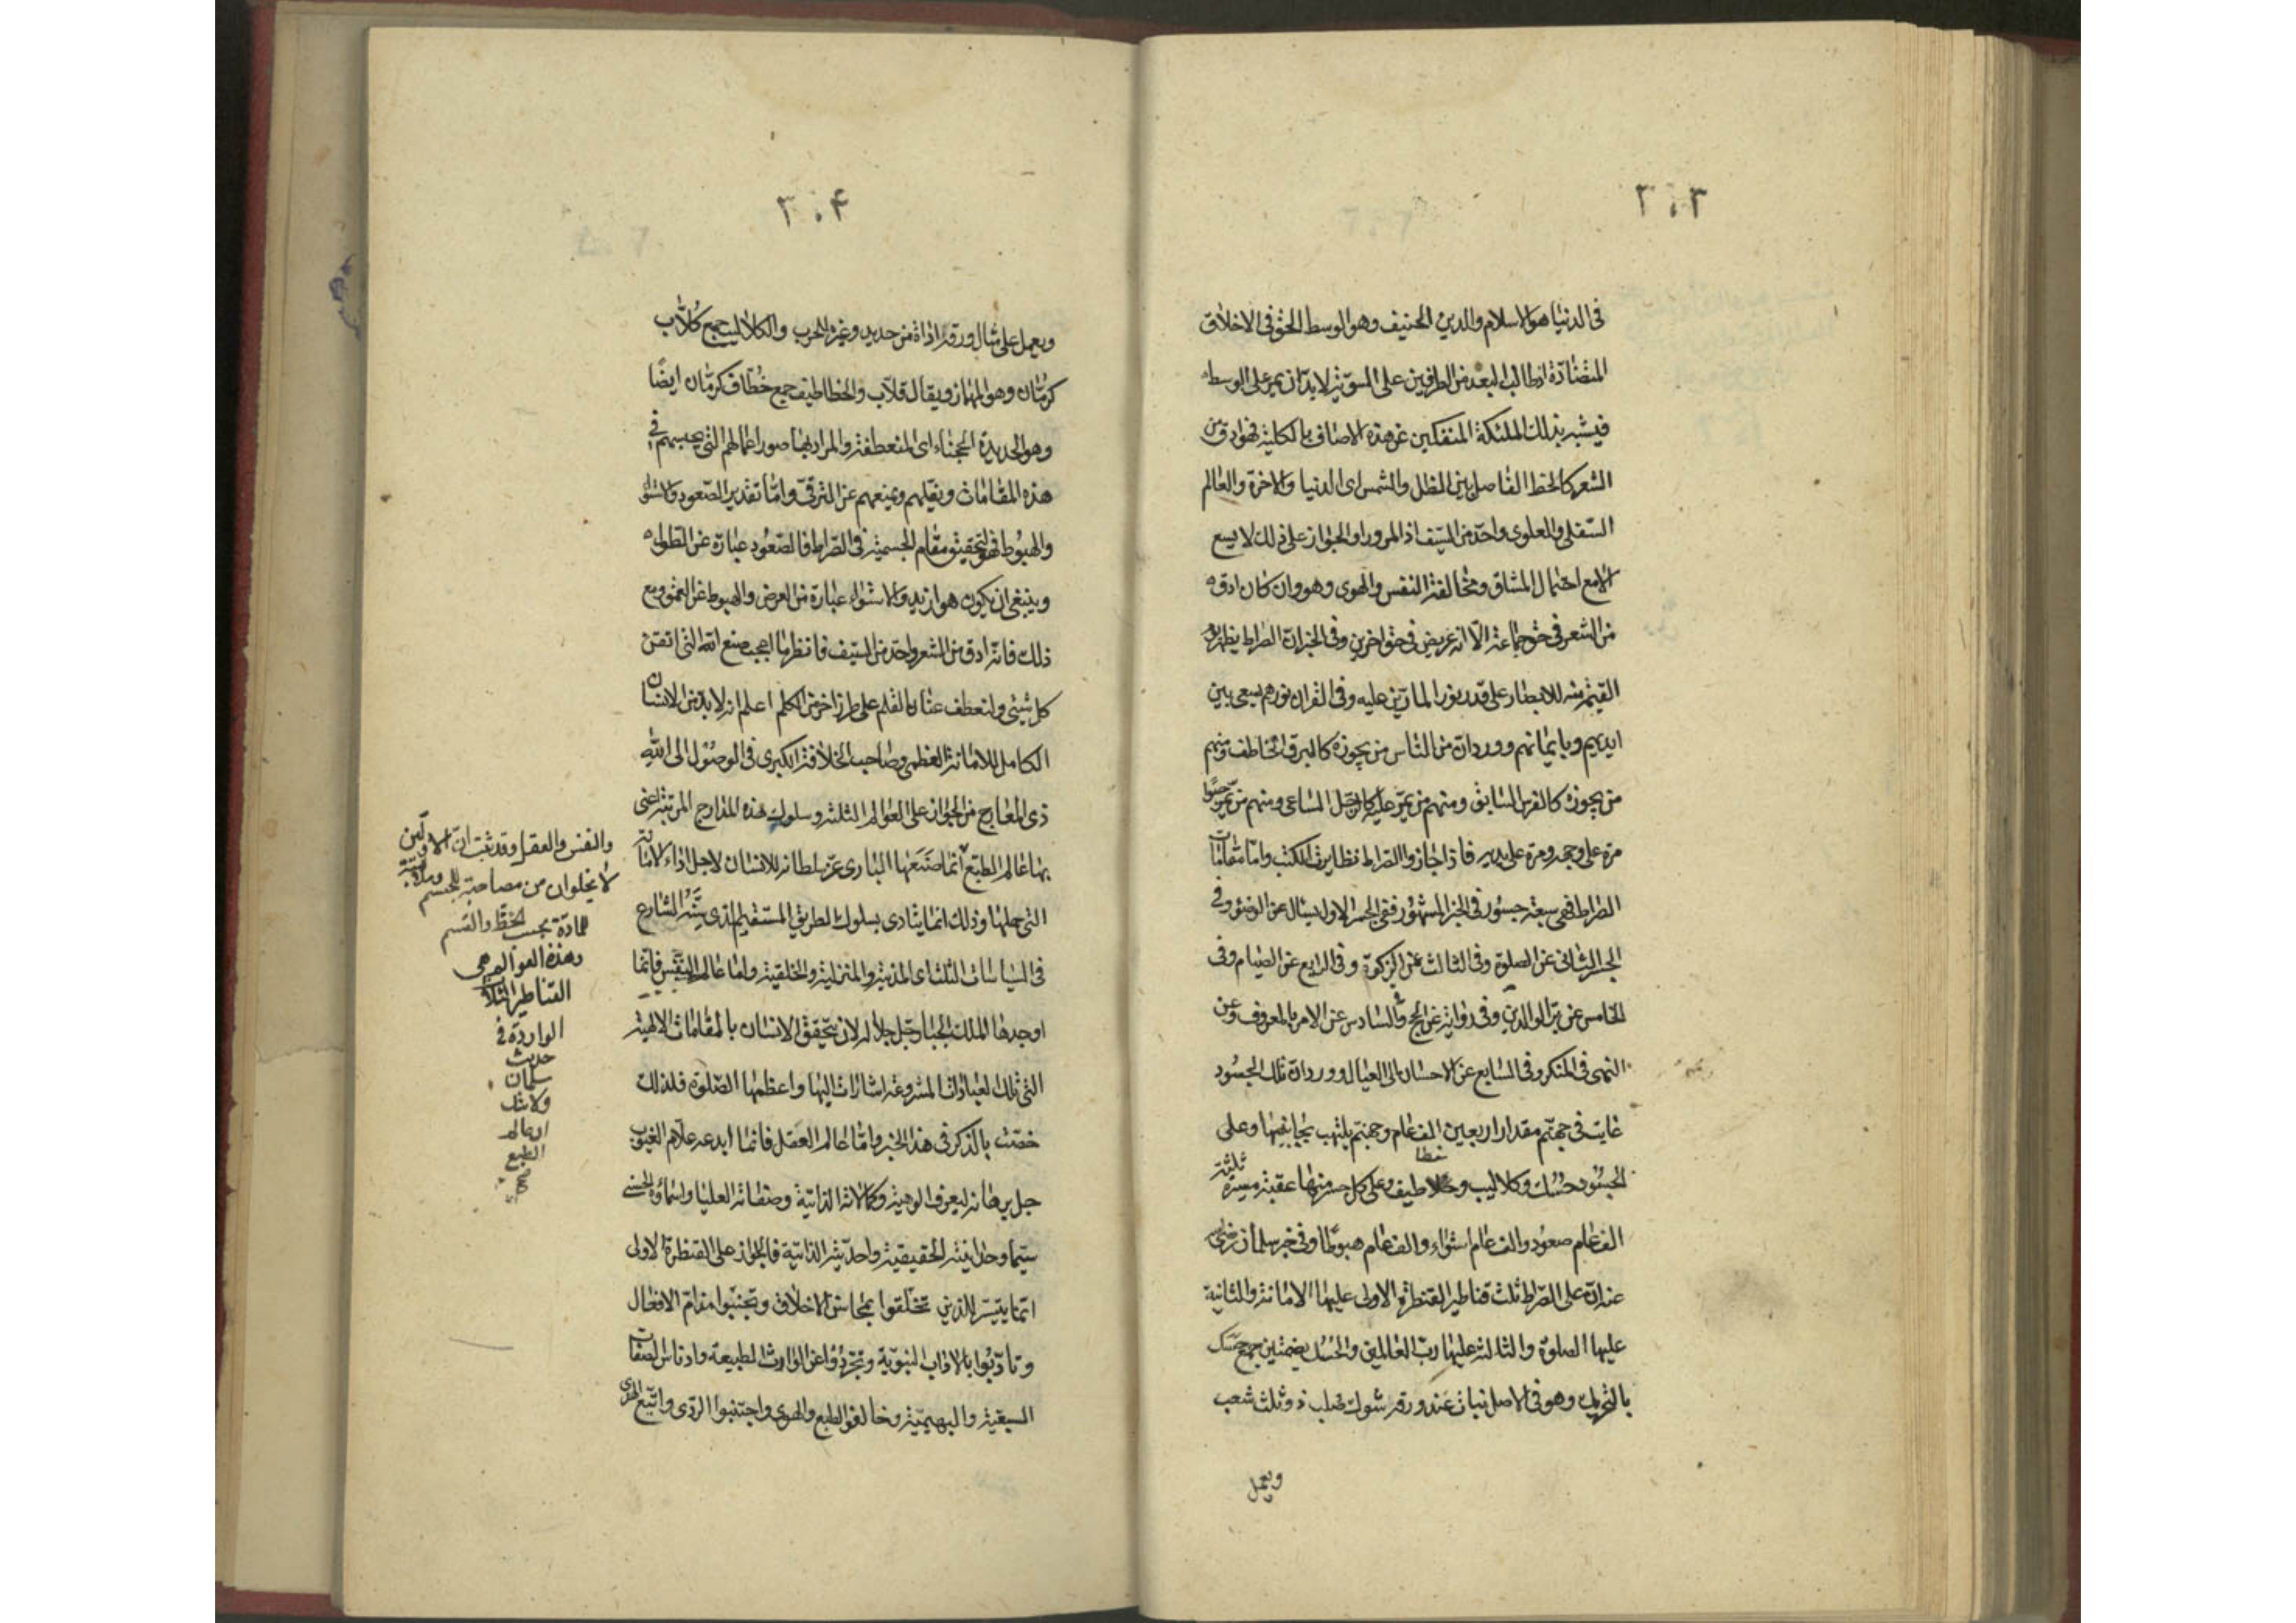 ٣٠٣
فى الدنيا هو الاسلام والدين الحنيف وهو الوسط الحق فى الاخلاق
المتضادة اذ طالب البعد من الطرفين على السوية لابد ان يمر على الوسط
فيشبه بذلك الملئكة المنفكين عن هذه الاصناف بالكلية فهو ادق من
الشعر كالخط الفاصل بين الظل والشمس اى الدنيا والاخرة والعالم
السفلى والعلوى واحد من السيف اذ المرور او الجواز على ذلك لا يسع
الا مع احتمال المشاق ومخالفة النفس والهوى وهو وان كان ادق
من الشعر فى حق جماعة الا انه عريض فى حق اخرين وفى الخبر ان الصراط يظهر يوم
القيمة منه للابصار على قدر نور المارين عليه وفى القران نورهم يسعى بين
ايديهم وبايمانهم وورد ان من الناس من يجوزه كالبرق الخاطف ومنهم
من يجوزه كالفرس السابق ومنهم من يمر عليه كالرجل الساعى ومنهم من يمر حبوا
مرة على وجهه ومرة على يديه فاذا جازوا الصراط تطاير الكتب واما مقامات
الصراط فهى سبعة جسور فى الخبر المشهور ففى الجسر الاول يسال عن الوضوء وفى
الجسر الثانى عن الصلوة وفى الثالث عن الزكوة وفى الرابع عن الصيام وفى
الخامس عن بر الوالدين وفى رواية عن الحج والسادس عن الامر بالمعروف وعن
النهى فى المنكر وفى السابع عن الاحسان الى العيال وورد ان تلك الجسور
غابت فى جهنم مقدار اربعين الف عام وجهنم يلتهب بجانبيها وعلى
الجسور حسك وكلاليب وخطاطيف وعلى كل جسر منها عقبة مسيرة ثلثة
الف عام صعود والف عام استواء والف عام هبوطا وفى خبر سلمان رضى الله
عنه ان على الصراط ثلث قناطير القنطرة الاولى عليها الامانة والثانية
عليها الصلوة والثالثة عليها رب العالمين والحسك بضمتين جمع حسك
بالتحريك وهو فى الاصل نبات عند ورقه شوك صلب ذو ثلث شعب
ويعمل
٣٠۴
ويعمل على مثال ورقه اداة من حديد وغيره للحرب والكلاليب جمع كلاب
كرمان وهو المهماز ويقال قلاب والخطاطيف جمع خطاف كرمان ايضا
وهو الحديدة الحجناء اى المنعطفة والمراد بها صور اعمالهم التى يحبسهم فى
هذه المقامات ويقيلهم ويمنعهم عن الترقى واما تقدير الصعود والاستواء
والهبوط فهو لتحقيق مقام الجسمية فى الصراط فالصعود عبارة عن الطول
وينبغى ان يكون هو ازيد والاستواء عبارة عن العرض والهبوط عن العمق ومع
ذلك فانه ادق من الشعر واحد من السيف فانظر ما اعجب صنع الله الذى اتقن
كل شىء ولنعطف عنان القلم على طرز اخر من الكلم اعلم انه لابد من الانسان
الكامل للامانة العظمى وصاحب الخلافة الكبرى فى الوصول الى الله
ذى المعارج من الجواز على العوالم الثلثة وسلوك هذه المدارج المرتبة اعنى
بها عالم الطبع انما صنعها البارى عز سلطانه للانسان لاجل اداء الامانة
التى حملها وذلك انما يتادى بسلوك الطريق المستقيم الذى بينه الشارع
فى السياسات الثلث اى المدنية والمنزلية والخلقية واما عالم النفس فانما
اوجدها الملك الجبار جل جلاله لان يتحقق الانسان بالمقامات الالهية
التى تلك العبادات المشروعة اشارات اليها واعظمها الصلوة فلذلك
خصت بالذكر فى هذا الخبر واما عالم العقل فانما ابدعه علام الغيوب
جل برهانه ليعرف الوهيته وكمالاته الذاتية وصفاته العليا واسماؤه الحسنى
سيما وحدانيته الحقيقية واحديته الذاتية فالجواز على القنطرة الاولى
انما يتيسر للذين تخلقوا بمحاسن الاخلاق وتجنبوا مذام الافعال
وتادبوا بالاداب النبوية وتجردوا عن لوازم الطبيعة وادناس الصفات
السبعية والبهيمية وخالفوا الطبع والهوى واجتنبوا الردى واتبع الهدى
والنفس والعقل وقد ثبت ان الاولين
لا يخلوان من مصاحبة للجسم وملابسة
للمادة بحسب الحظ والقسم
وهذه العوالم هى
القناطر الثلاث
الواردة فى
حديث
سلمان
ولا شك
ان عالم
الطبع
صح